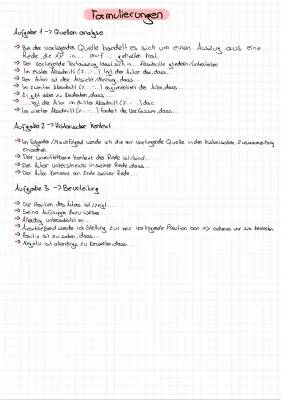 Formulierungen
Aufgabe 1 -> Quellenanalyse
-> Bei der vorliegenden Quelle handelt es sich um einen Auszug aus eine...
Rede, die XY in ... auf ... gehalten hat.
-> Der vorliegende Textauszug lässt sich in ... Abschnitte gliedern/unterteilen
-> Im ersten Abschnitt (Z. ...-...) legt der Autor dar, dass...
-> Der Autor ist der Ansicht/Meinung, dass...
-> Im zweiten Abschnitt (Z. ...-...) argumentiert der Autor, dass...
-> Er gibt aber zu bedenken, dass...
-> ... legt der Autor im dritten Abschnitt (Z. ...-...) dar.
-> Im vierten Abschnitt (Z. ...-...) fordert der Verfasser, dass...
Aufgabe 2 -> Historischer Kontext
-> Im Folgenden/Nachfolgend werde ich die mir vorliegende Quelle in den historischen Zusammenhang
einordnen.
-> Der unmittelbare Kontext der Rede ist/sind...
-> Der Autor unterstreicht in seiner Rede, dass...
-> Der Autor benennt am Ende seiner Rede...
Aufgabe 3 -> Beurteilung
-> Die Position des Autors ist/zeigt...
-> Seine Aussagen
-> Allerdings unterschätzt er...
-> Anschließend werde ich Stellung zur mir vorliegenden Position von XY nehmen und sie bewerten.
-> Positiv ist zu sehen, dass...
-> Negativ ist allerdings zu beurteilen, dass...